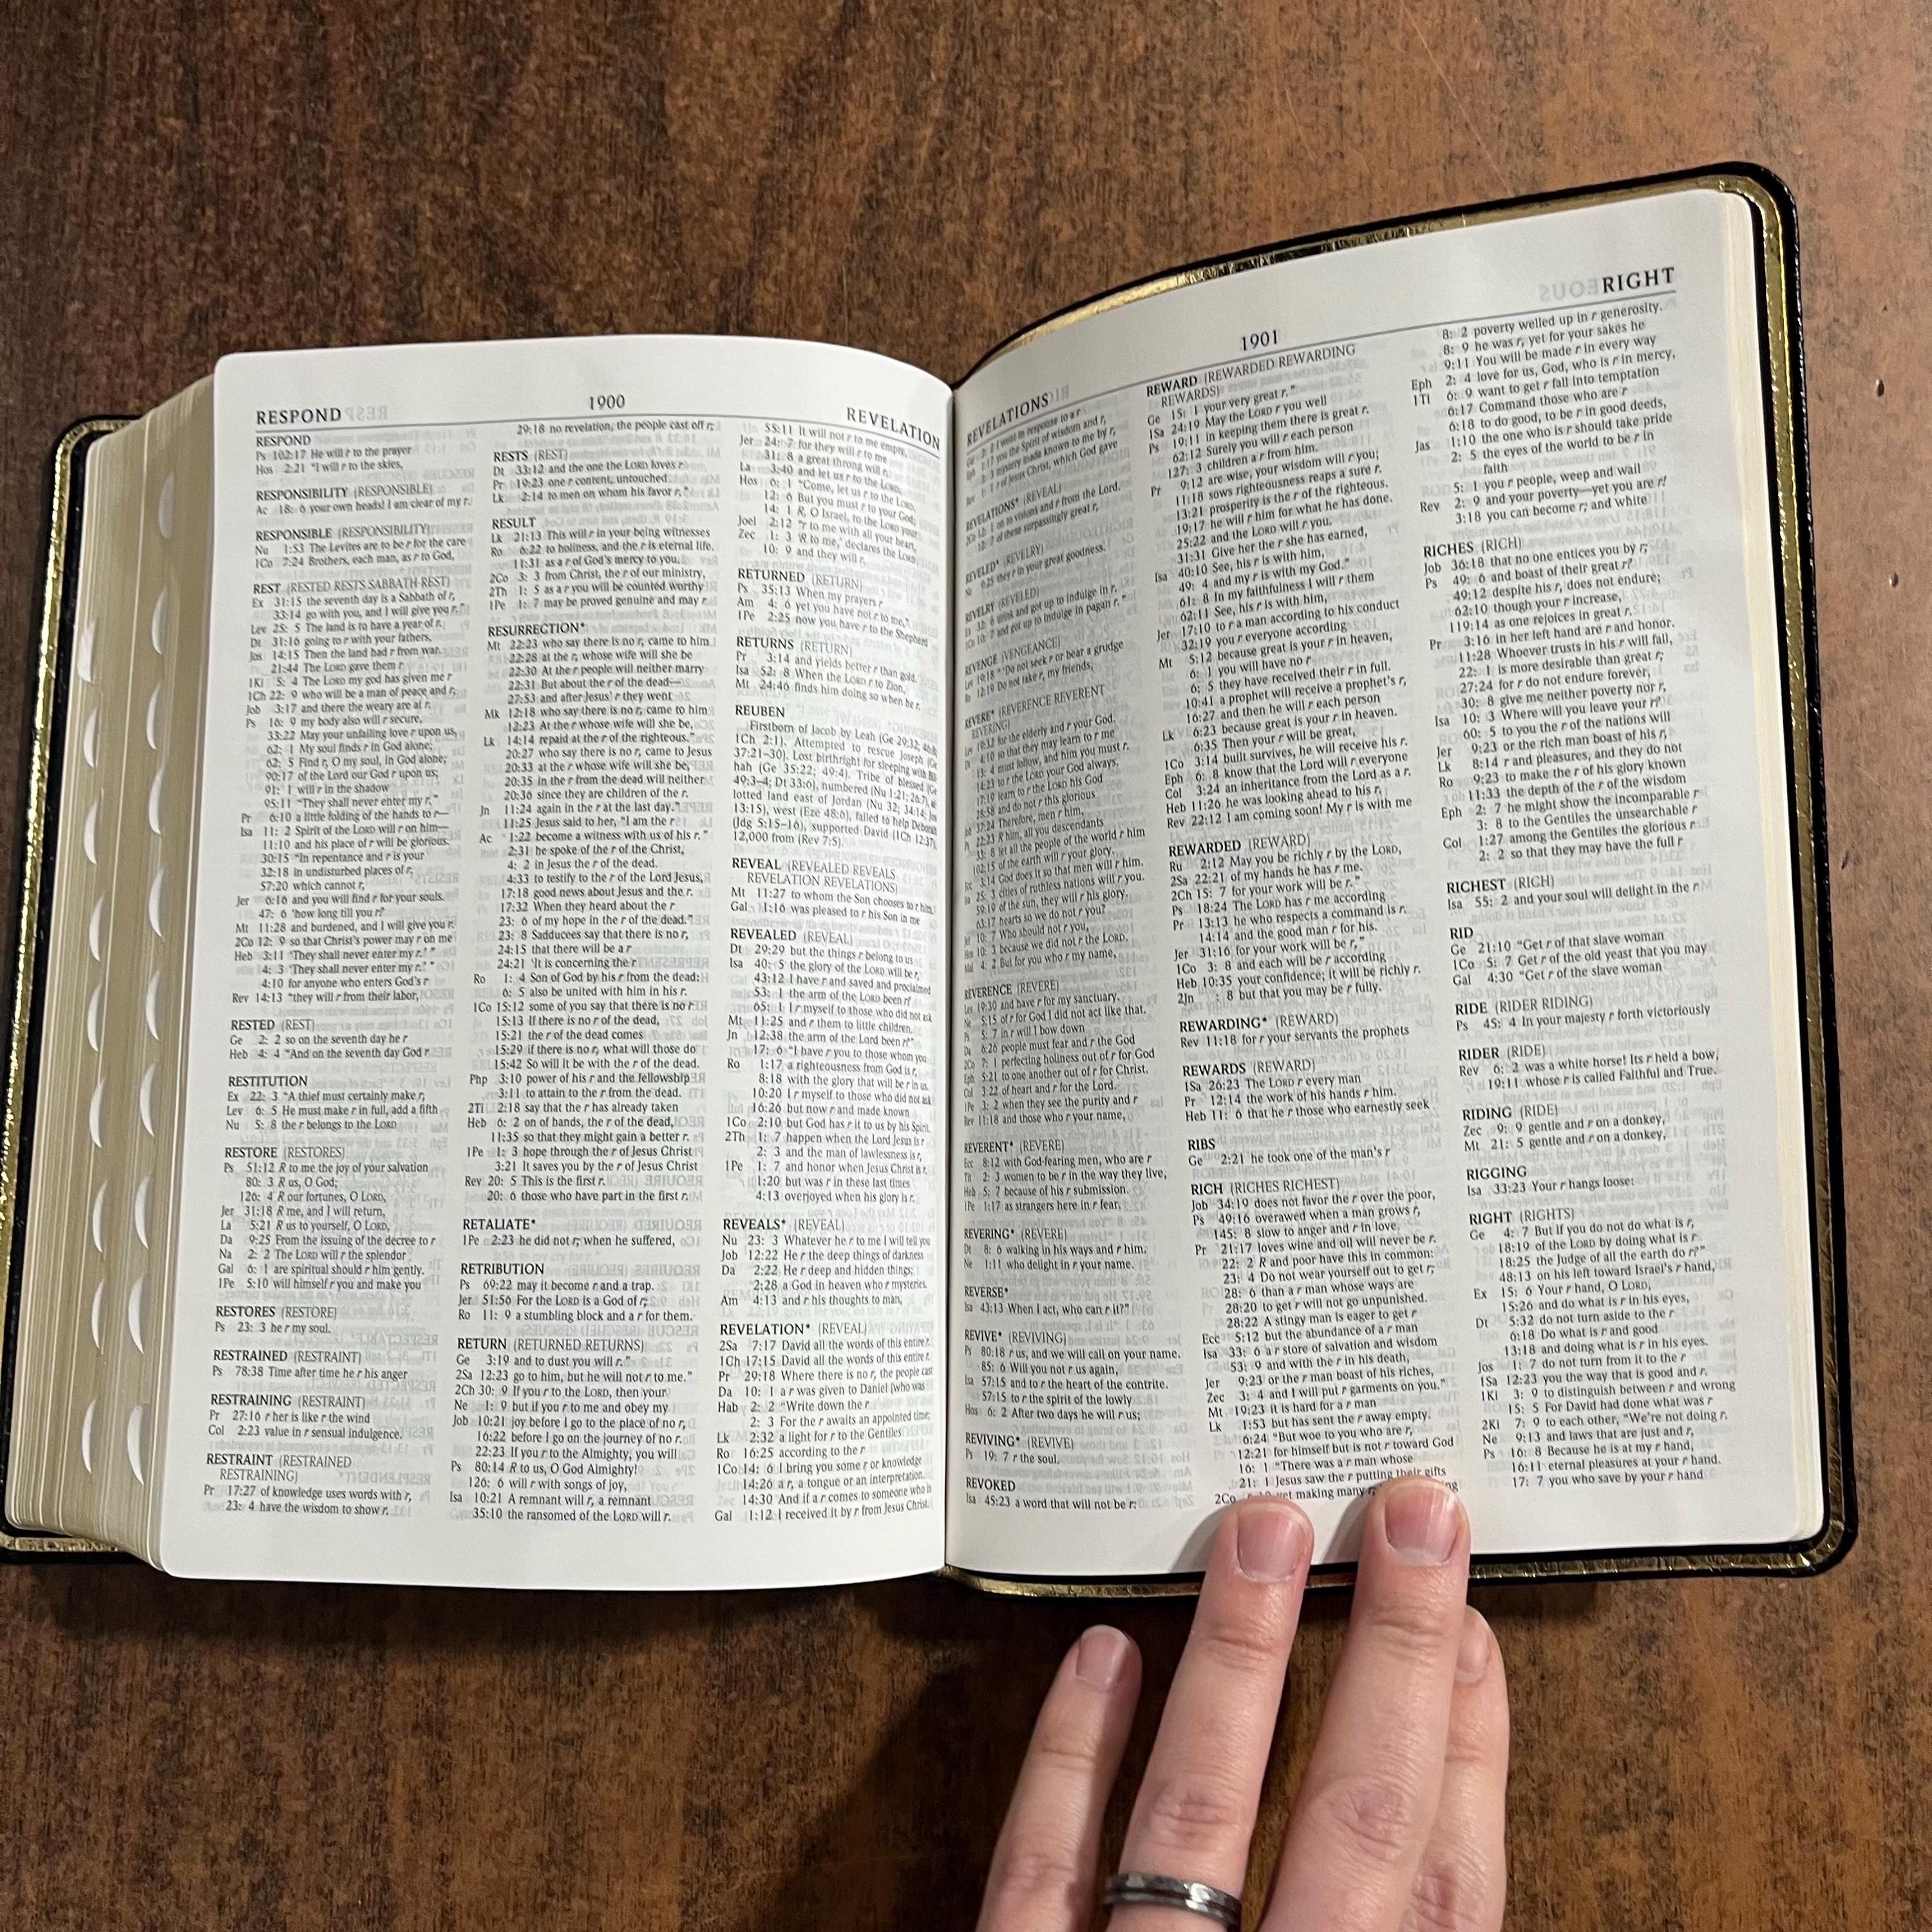 RESPOND
1900
REVELATION
RESPOND
Ps 102:17 He will r to the prayer
Hos 2:21 "I will r to the skies,
RESPONSIBILITY (RESPONSIBLE)
Ac 18: 6 your own heads! I am clear of my r.
RESPONSIBLE (RESPONSIBILITY)
Nu 1:53 The Levites are to be r for the care
1Co 7:24 Brothers, each man, as r to God,
REST (RESTED RESTS SABBATH-REST)
Ex 31:15 the seventh day is a Sabbath of r,
33:14 go with you, and I will give you r."
Lev 25: 5 The land is to have a year of r.
Dt 31:16 going to r with your fathers,
Jos 14:15 Then the land had r from war.
21:44 The LORD gave them r
1Ki 5: 4 The LORD my god has given me r
1Ch 22: 9 who will be a man of peace and r,
Job 3:17 and there the weary are at r.
Ps 16: 9 my body also will r secure,
33:22 May your unfailing love r upon us,
62: 1 My soul finds r in God alone;
62: 5 Find r, O my soul, in God alone;
90:17 of the Lord our God r upon us;
91: 1 will r in the shadow
95:11 "They shall never enter my r."
Pr 6:10 a little folding of the hands to r—
Isa 11: 2 Spirit of the LORD will r on him—
11:10 and his place of r will be glorious.
30:15 "In repentance and r is your
32:18 in undisturbed places of r.
57:20 which cannot r,
Jer 6:16 and you will find r for your souls.
47: 6 'how long till you r?
Mt 11:28 and burdened, and I will give you r.
2Co 12: 9 so that Christ's power may r on me
Heb 3:11 'They shall never enter my r.' "
4: 3 'They shall never enter my r.' "
4:10 for anyone who enters God's r
Rev 14:13 "they will r from their labor,
RESTED (REST)
Ge 2: 2 so on the seventh day he r
Heb 4: 4 "And on the seventh day God r
RESTITUTION
Ex 22: 3 "A thief must certainly make r,
Lev 6: 5 He must make r in full, add a fifth
Nu 5: 8 the r belongs to the LORD
RESTORE (RESTORES)
Ps 51:12 R to me the joy of your salvation
80: 3 R us, O God;
126: 4 R our fortunes, O LORD,
Jer 31:18 R me, and I will return,
La 5:21 R us to yourself, O LORD,
Da 9:25 From the issuing of the decree to r
Na 2: 2 The LORD will r the splendor
Gal 6: 1 are spiritual should r him gently.
1Pe 5:10 will himself r you and make you
RESTORES (RESTORE)
Ps 23: 3 he r my soul.
RESTRAINED (RESTRAINT)
Ps 78:38 Time after time he r his anger
RESTRAINING (RESTRAINT)
Pr 27:16 r her is like r the wind
Col 2:23 value in r sensual indulgence.
RESTRAINT (RESTRAINED
RESTRAINING)
Pr 17:27 of knowledge uses words with r,
23: 4 have the wisdom to show r.
29:18 no revelation, the people cast off r;
RESTS (REST)
Dt 33:12 and the one the LORD loves r
Pr 19:23 one r content, untouched
Lk 2:14 to men on whom his favor r."
RESULT
Lk 21:13 This will r in your being witnesses
Ro 6:22 to holiness, and the r is eternal life.
11:31 as a r of God's mercy to you.
2Co 3: 3 from Christ, the r of our ministry,
2Th 1: 5 as a r you will be counted worthy
1Pe 1: 7 may be proved genuine and may r
RESURRECTION*
Mt 22:23 who say there is no r, came to him
22:28 at the r, whose wife will she be
22:30 At the r people will neither marry
22:31 But about the r of the dead—
27:53 and after Jesus' r they went
Mk 12:18 who say there is no r, came to him
12:23 At the r whose wife will she be,
Lk 14:14 repaid at the r of the righteous."
20:27 who say there is no r, came to Jesus
20:33 at the r whose wife will she be,
20:35 in the r from the dead will neither
20:36 since they are children of the r.
Jn 11:24 again in the r at the last day."
11:25 Jesus said to her, "I am the r
Ac 1:22 become a witness with us of his r."
2:31 he spoke of the r of the Christ,
4: 2 in Jesus the r of the dead.
4:33 to testify to the r of the Lord Jesus,
17:18 good news about Jesus and the r.
17:32 When they heard about the r
23: 6 of my hope in the r of the dead."
23: 8 Sadducees say that there is no r,
24:15 that there will be a r
24:21 'It is concerning the r
Ro 1: 4 Son of God by his r from the dead:
6: 5 also be united with him in his r.
1Co 15:12 some of you say that there is no r
15:13 If there is no r of the dead,
15:21 the r of the dead comes
15:29 if there is no r, what will those do
15:42 So will it be with the r of the dead.
Php 3:10 power of his r and the fellowship
3:11 to attain to the r from the dead.
2Ti 2:18 say that the r has already taken
Heb 6: 2 on of hands, the r of the dead,
11:35 so that they might gain a better r.
1Pe 1: 3 hope through the r of Jesus Christ
3:21 It saves you by the r of Jesus Christ
Rev 20: 5 This is the first r.
20: 6 those who have part in the first r.
RETALIATE*
1Pe 2:23 he did not r; when he suffered,
RETRIBUTION
Ps 69:22 may it become r and a trap.
Jer 51:56 For the LORD is a God of r;
Ro 11: 9 a stumbling block and a r for them.
RETURN (RETURNED RETURNS)
Ge 3:19 and to dust you will r."
2Sa 12:23 go to him, but he will not r to me."
2Ch 30: 9 If you r to the LORD, then your
Ne 1: 9 but if you r to me and obey my
Job 10:21 joy before I go to the place of no r,
16:22 before I go on the journey of no r.
22:23 If you r to the Almighty, you will
Ps 80:14 R to us, O God Almighty!
126: 6 will r with songs of joy,
Isa 10:21 A remnant will r, a remnant
35:10 the ransomed of the LORD will r.
55:11 It will not r to me empty,
Jer 24: 7 for they will r to me
31: 8 a great throng will r.
La 3:40 and let us r to the LORD.
Hos 6: 1 "Come, let us r to the LORD.
12: 6 But you must r to your God;
14: 1 R, O Israel, to the LORD your
Joel 2:12 "r to me with all your heart,
Zec 1: 3 'R to me,' declares the LORD
10: 9 and they will r.
RETURNED (RETURN)
Ps 35:13 When my prayers r
Am 4: 6 yet you have not r to me,"
1Pe 2:25 now you have r to the Shepherd
RETURNS (RETURN)
Pr 3:14 and yields better r than gold.
Isa 52: 8 When the LORD r to Zion,
Mt 24:46 finds him doing so when he r.
REUBEN
Firstborn of Jacob by Leah (Ge 29:32; 46:8;
1Ch 2:1). Attempted to rescue Joseph (Ge
37:21-30). Lost birthright for sleeping with Bil-
hah (Ge 35:22; 49:4). Tribe of blessed (Ge
49:3-4; Dt 33:6), numbered (Nu 1:21; 26:7), al-
lotted land east of Jordan (Nu 32; 34:14; Jos
13:15), west (Eze 48:6), failed to help Deborah
(Jdg 5:15-16), supported David (1Ch 12:37),
12,000 from (Rev 7:5).
REVEAL (REVEALED REVEALS
REVELATION REVELATIONS)
Mt 11:27 to whom the Son chooses to r him.
Gal 1:16 was pleased to r his Son in me
REVEALED (REVEAL)
Dt 29:29 but the things r belong to us
Isa 40: 5 the glory of the LORD will be r,
43:12 I have r and saved and proclaimed
53: 1 the arm of the LORD been r?
65: 1 I r myself to those who did not ask
Mt 11:25 and r them to little children.
Jn 12:38 the arm of the Lord been r?"
17: 6 "I have r you to those whom you
Ro 1:17 a righteousness from God is r,
8:18 with the glory that will be r in us.
10:20 I r myself to those who did not ask
16:26 but now r and made known
1Co 2:10 but God has r it to us by his Spirit.
2Th 1: 7 happen when the Lord Jesus is r
2: 3 and the man of lawlessness is r,
1Pe 1: 7 and honor when Jesus Christ is r.
1:20 but was r in these last times
4:13 overjoyed when his glory is r.
REVEALS* (REVEAL)
Nu 23: 3 Whatever he r to me I will tell you
Job 12:22 He r the deep things of darkness
Da 2:22 He r deep and hidden things;
2:28 a God in heaven who r mysteries.
Am 4:13 and r his thoughts to man,
REVELATION* (REVEAL)
2Sa 7:17 David all the words of this entire r.
1Ch 17:15 David all the words of this entire r.
Pr 29:18 Where there is no r, the people cast
Da 10: 1 a r was given to Daniel (who was
Hab 2: 2 "Write down the r
2: 3 For the r awaits an appointed time;
Lk 2:32 a light for r to the Gentiles
Ro 16:25 according to the r
1Co 14: 6 I bring you some r or knowledge
14:26 a r, a tongue or an interpretation.
14:30 And if a r comes to someone who is
Gal 1:12 I received it by r from Jesus Christ.
REVELATIONS
1901
RIGHT
2: 2 I went in response to a r
1:17 you the Spirit of wisdom and r,
3: 3 mystery made known to me by r,
1: 1 r of Jesus Christ, which God gave
REVELATIONS* (REVEAL)
2Co 12: 1 on to visions and r from the Lord.
12: 7 of these surpassingly great r,
REVELED* (REVELRY)
Ne 9:25 they r in your great goodness.
REVELRY (REVELED)
Ex 32: 6 drink and got up to indulge in r.
1Co 10: 7 and got up to indulge in pagan r."
REVENGE (VENGEANCE)
Lev 19:18 " 'Do not seek r or bear a grudge
Ro 12:19 Do not take r, my friends,
REVERE* (REVERENCE REVERENT
REVERING)
Lev 19:32 for the elderly and r your God.
Dt 4:10 so that they may learn to r me
13: 4 must follow, and him you must r.
14:23 to r the LORD your God always.
17:19 learn to r the LORD his God
28:58 and do not r this glorious
Job 37:24 Therefore, men r him,
Ps 22:23 R him, all you descendants
33: 8 let all the people of the world r him
102:15 of the earth will r your glory.
Ecc 3:14 God does it so that men will r him.
Isa 25: 3 cities of ruthless nations will r you.
59:19 of the sun, they will r his glory.
63:17 hearts so we do not r you?
Jer 10: 7 Who should not r you,
Hos 10: 3 because we did not r the LORD.
Mal 4: 2 But for you who r my name,
REVERENCE (REVERE)
Lev 19:30 and have r for my sanctuary.
Ne 5:15 of r for God I did not act like that.
Ps 5: 7 in r will I bow down
Da 6:26 people must fear and r the God
2Co 7: 1 perfecting holiness out of r for God
Eph 5:21 to one another out of r for Christ.
Col 3:22 of heart and r for the Lord.
1Pe 3: 2 when they see the purity and r
Rev 11:18 and those who r your name,
REVERENT* (REVERE)
Ecc 8:12 with God-fearing men, who are r
Tit 2: 3 women to be r in the way they live,
Heb 5: 7 because of his r submission.
1Pe 1:17 as strangers here in r fear,
REVERING* (REVERE)
Dt 8: 6 walking in his ways and r him.
Ne 1:11 who delight in r your name.
REVERSE*
Isa 43:13 When I act, who can r it?"
REVIVE* (REVIVING)
Ps 80:18 r us, and we will call on your name.
85: 6 Will you not r us again,
Isa 57:15 and to r the heart of the contrite.
57:15 to r the spirit of the lowly
Hos 6: 2 After two days he will r us;
REVIVING* (REVIVE)
Ps 19: 7 r the soul.
REVOKED
Isa 45:23 a word that will not be r:
REWARD (REWARDED REWARDING
REWARDS)
Ge 15: 1 your very great r."
1Sa 24:19 May the LORD r you well
Ps 19:11 in keeping them there is great r.
62:12 Surely you will r each person
127: 3 children a r from him.
Pr 9:12 are wise, your wisdom will r you;
11:18 sows righteousness reaps a sure r.
13:21 prosperity is the r of the righteous.
19:17 he will r him for what he has done.
25:22 and the LORD will r you.
31:31 Give her the r she has earned,
Isa 40:10 See, his r is with him,
49: 4 and my r is with my God."
61: 8 In my faithfulness I will r them
62:11 See, his r is with him,
Jer 17:10 to r a man according to his conduct
32:19 you r everyone according
Mt 5:12 because great is your r in heaven,
6: 1 you will have no r
6: 5 they have received their r in full.
10:41 a prophet will receive a prophet's r,
16:27 and then he will r each person
Lk 6:23 because great is your r in heaven.
6:35 Then your r will be great,
1Co 3:14 built survives, he will receive his r.
Eph 6: 8 know that the Lord will r everyone
Col 3:24 an inheritance from the Lord as a r.
Heb 11:26 he was looking ahead to his r.
Rev 22:12 I am coming soon! My r is with me
REWARDED (REWARD)
Ru 2:12 May you be richly r by the LORD,
2Sa 22:21 of my hands he has r me.
2Ch 15: 7 for your work will be r."
Ps 18:24 The LORD has r me according
Pr 13:13 he who respects a command is r.
14:14 and the good man r for his.
Jer 31:16 for your work will be r,"
1Co 3: 8 and each will be r according
Heb 10:35 your confidence; it will be richly r.
2Jn : 8 but that you may be r fully.
REWARDING* (REWARD)
Rev 11:18 for r your servants the prophets
REWARDS (REWARD)
1Sa 26:23 The LORD r every man
Pr 12:14 the work of his hands r him.
Heb 11: 6 that he r those who earnestly seek
RIBS
Ge 2:21 he took one of the man's r
RICH (RICHES RICHEST)
Job 34:19 does not favor the r over the poor,
Ps 49:16 overawed when a man grows r,
145: 8 slow to anger and r in love.
Pr 21:17 loves wine and oil will never be r.
22: 2 R and poor have this in common:
23: 4 Do not wear yourself out to get r;
28: 6 than a r man whose ways are
28:20 to get r will not go unpunished.
28:22 A stingy man is eager to get r
Ecc 5:12 but the abundance of a r man
Isa 33: 6 a r store of salvation and wisdom
53: 9 and with the r in his death,
Jer 9:23 or the r man boast of his riches,
Zec 3: 4 and I will put r garments on you."
Mt 19:23 it is hard for a r man
Lk 1:53 but has sent the r away empty.
6:24 "But woe to you who are r,
12:21 for himself but is not r toward God
16: 1 "There was a r man whose
21: 1 Jesus saw the r putting their gifts
2Co yet making many r,
8: 2 poverty welled up in r generosity.
8: 9 he was r, yet for your sakes he
9:11 You will be made r in every way
Eph 2: 4 love for us, God, who is r in mercy,
1Ti 6: 9 want to get r fall into temptation
6:17 Command those who are r
6:18 to do good, to be r in good deeds,
Jas 1:10 the one who is r should take pride
2: 5 the eyes of the world to be r in
faith
5: 1 you r people, weep and wail
Rev 2: 9 and your poverty—yet you are r!
3:18 you can become r; and white
RICHES (RICH)
Job 36:18 that no one entices you by r;
Ps 49: 6 and boast of their great r?
49:12 despite his r, does not endure;
62:10 though your r increase,
119:14 as one rejoices in great r.
Pr 3:16 in her left hand are r and honor.
11:28 Whoever trusts in his r will fall,
22: 1 is more desirable than great r;
27:24 for r do not endure forever,
30: 8 give me neither poverty nor r,
Isa 10: 3 Where will you leave your r?
60: 5 to you the r of the nations will
Jer 9:23 or the rich man boast of his r,
Lk 8:14 r and pleasures, and they do not
Ro 9:23 to make the r of his glory known
11:33 the depth of the r of the wisdom
Eph 2: 7 he might show the incomparable r
3: 8 to the Gentiles the unsearchable r
Col 1:27 among the Gentiles the glorious r
2: 2 so that they may have the full r
RICHEST (RICH)
Isa 55: 2 and your soul will delight in the r
RID
Ge 21:10 "Get r of that slave woman
1Co 5: 7 Get r of the old yeast that you may
Gal 4:30 "Get r of the slave woman
RIDE (RIDER RIDING)
Ps 45: 4 In your majesty r forth victoriously
RIDER (RIDE)
Rev 6: 2 was a white horse! Its r held a bow,
19:11 whose r is called Faithful and True.
RIDING (RIDE)
Zec 9: 9 gentle and r on a donkey,
Mt 21: 5 gentle and r on a donkey,
RIGGING
Isa 33:23 Your r hangs loose:
RIGHT (RIGHTS)
Ge 4: 7 But if you do not do what is r,
18:19 of the LORD by doing what is r
18:25 the Judge of all the earth do r?"
48:13 on his left toward Israel's r hand,
Ex 15: 6 Your r hand, O LORD,
15:26 and do what is r in his eyes,
Dt 5:32 do not turn aside to the r
6:18 Do what is r and good
13:18 and doing what is r in his eyes.
Jos 1: 7 do not turn from it to the r
1Sa 12:23 you the way that is good and r.
1Ki 3: 9 to distinguish between r and wrong
15: 5 For David had done what was r
2Ki 7: 9 to each other, "We're not doing r.
Ne 9:13 and laws that are just and r,
Ps 16: 8 Because he is at my r hand,
16:11 eternal pleasures at your r hand.
17: 7 you who save by your r hand